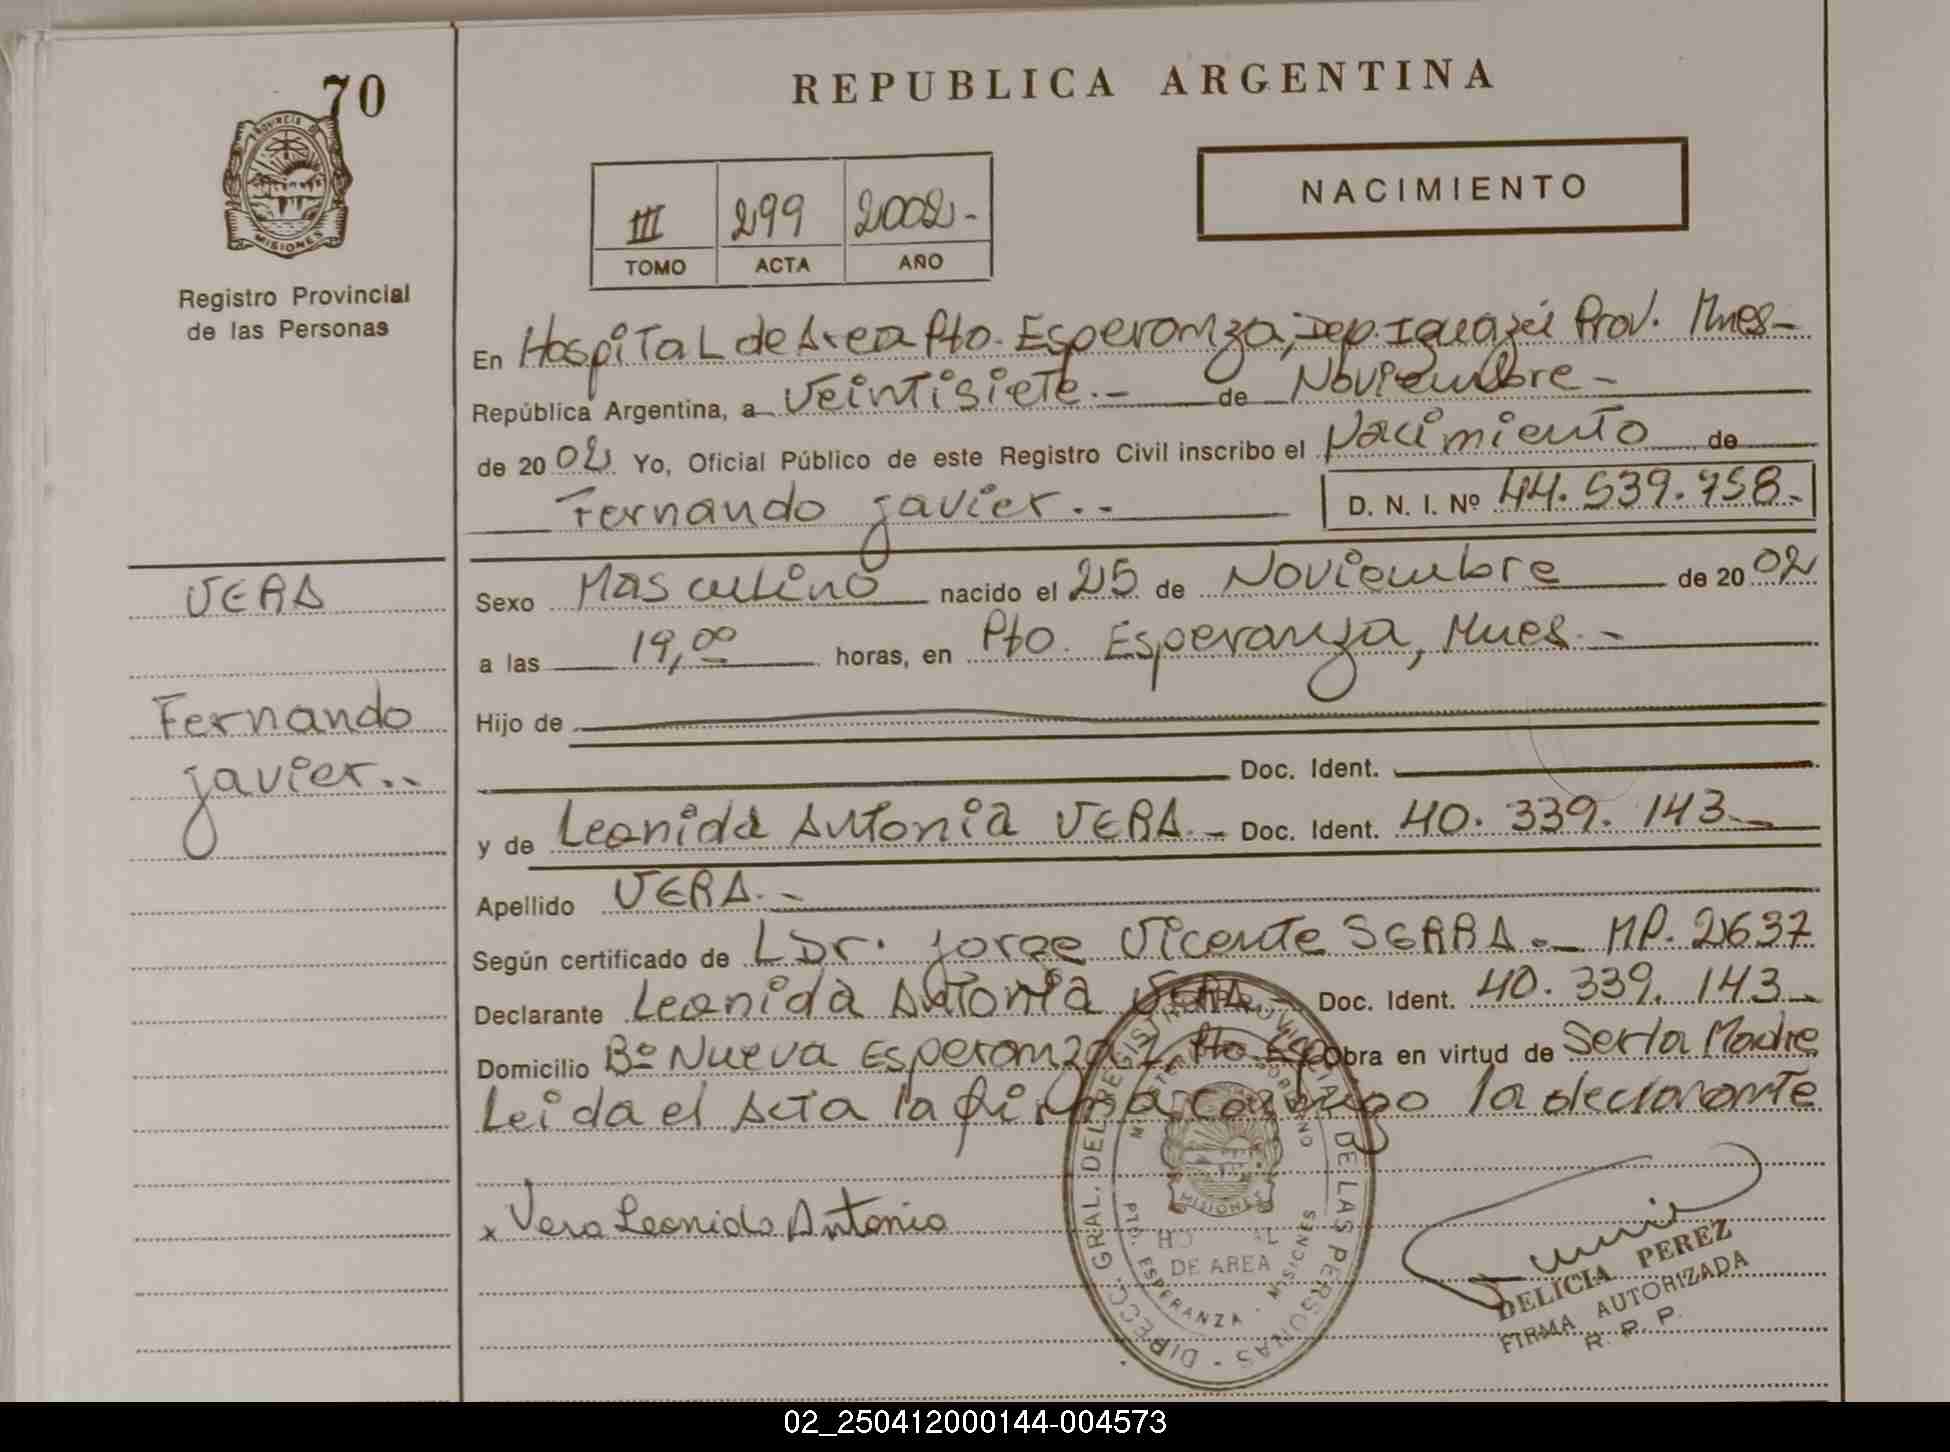 70
REPUBLICA ARGENTINA
PROVINCIA DE
MISIONES
Registro Provincial
de las Personas
NACIMIENTO
III 299 2002-
TOMO ACTA AÑO
En Hospital de Area Pto. Esperanza, Dep. Iguazú Prov. Mnes-
República Argentina, a veintisiete.- de Noviembre-
de 2002 Yo, Oficial Público de este Registro Civil inscribo el Nacimiento de
Fernando javier.- D. N. I. Nº 44.539.758-
VERA
Sexo Masculino nacido el 25 de Noviembre de 2002
a las 19,00 horas, en Pto. Esperanza, Mnes.-
Fernando
javier.-
Hijo de
Doc. Ident.
y de Leonida Antonia VERA.- Doc. Ident. 40.339.143-
Apellido VERA.-
Según certificado de Dr. jorge Vicente SERRA.- MP. 2637
Declarante Leonida Antonia VERA- Doc. Ident. 40.339.143-
Domicilio Bº Nueva Esperanza, Pto. Esp. Obra en virtud de Ser la Madre
Leida el Acta la firma conmigo la declarante
x Vera Leonida Antonia
DIRECC. GRAL. DEL REGISTRO PROVINCIAL DE LAS PERSONAS
MINISTERIO GOBIERNO
MISIONES
DE AREA
PTO. ESPERANZA - MISIONES
DELICIA PEREZ
FIRMA AUTORIZADA
R. P. P.
02_250412000144-004573